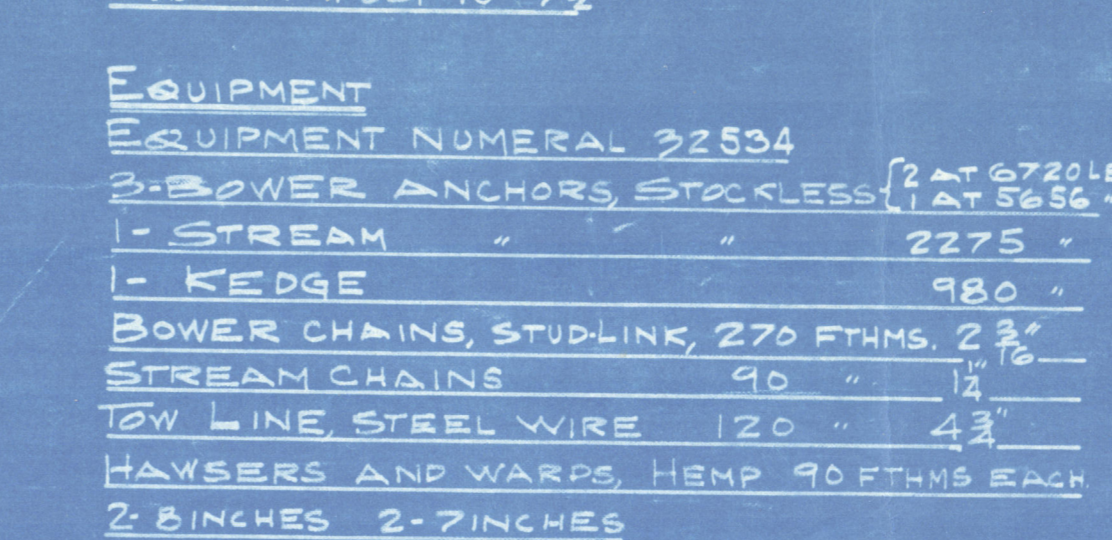 EQUIPMENT
EQUIPMENT NUMERAL 32534
3-BOWER ANCHORS, STOCKLESS { 2 AT 6720 LB
1 AT 5656 "
1- STREAM " " 2275 "
1- KEDGE 980 "
BOWER CHAINS, STUD-LINK, 270 FTHMS. 2 3/16"
STREAM CHAINS 90 " 1 1/4"
TOW LINE, STEEL WIRE 120 " 4 3/4"
HAWSERS AND WARPS, HEMP 90 FTHMS EACH.
2-8INCHES 2-7INCHES